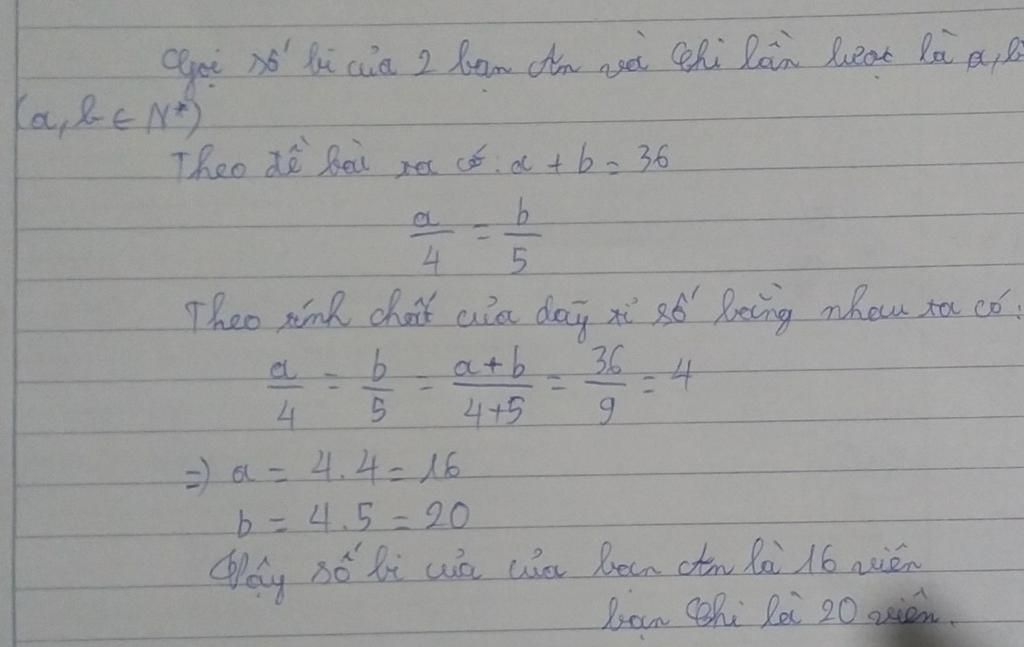 Gọi số bi của 2 bạn An và Chi lần lượt là a, b
(a, b ∈ N*)
Theo đề bài ta có: a + b = 36
a/4 = b/5
Theo tính chất của dãy tỉ số bằng nhau ta có:
a/4 = b/5 = (a+b)/(4+5) = 36/9 = 4
=> a = 4.4 = 16
b = 4.5 = 20
Vậy số bi của của bạn An là 16 viên
bạn Chi là 20 viên.